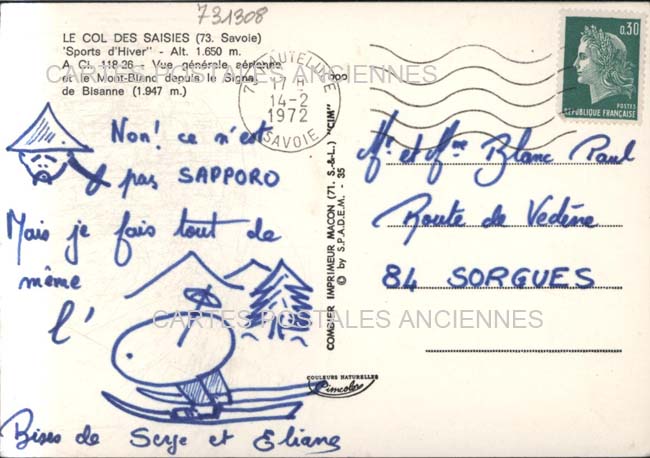 731308
LE COL DES SAISIES (73. Savoie)
'Sports d'Hiver" - Alt. 1.650 m.
A. Ci. 118-26 - Vue générale aérienne
et le Mont-Blanc depuis le Signal
de Bisanne (1.947 m.)
CARTES POSTALES ANCIENNES
73 HAUTELUCE
17 H
14-2
1972
SAVOIE
0,30
POSTES
REPUBLIQUE FRANÇAISE
Non! ce n'est
pas SAPPORO
Mais je fais tout de
même
l'
Bises de Serge et Eliane
COMBIER IMPRIMEUR MACON (71. S.-&-L.) "CIM"
© by S.P.A.D.E.M. - 35
COULEURS NATURELLES
Cimcolor
Mr et Mme Blanc Paul
Route de Vedène
84 SORGUES
CARTES POSTALES ANCIENNES